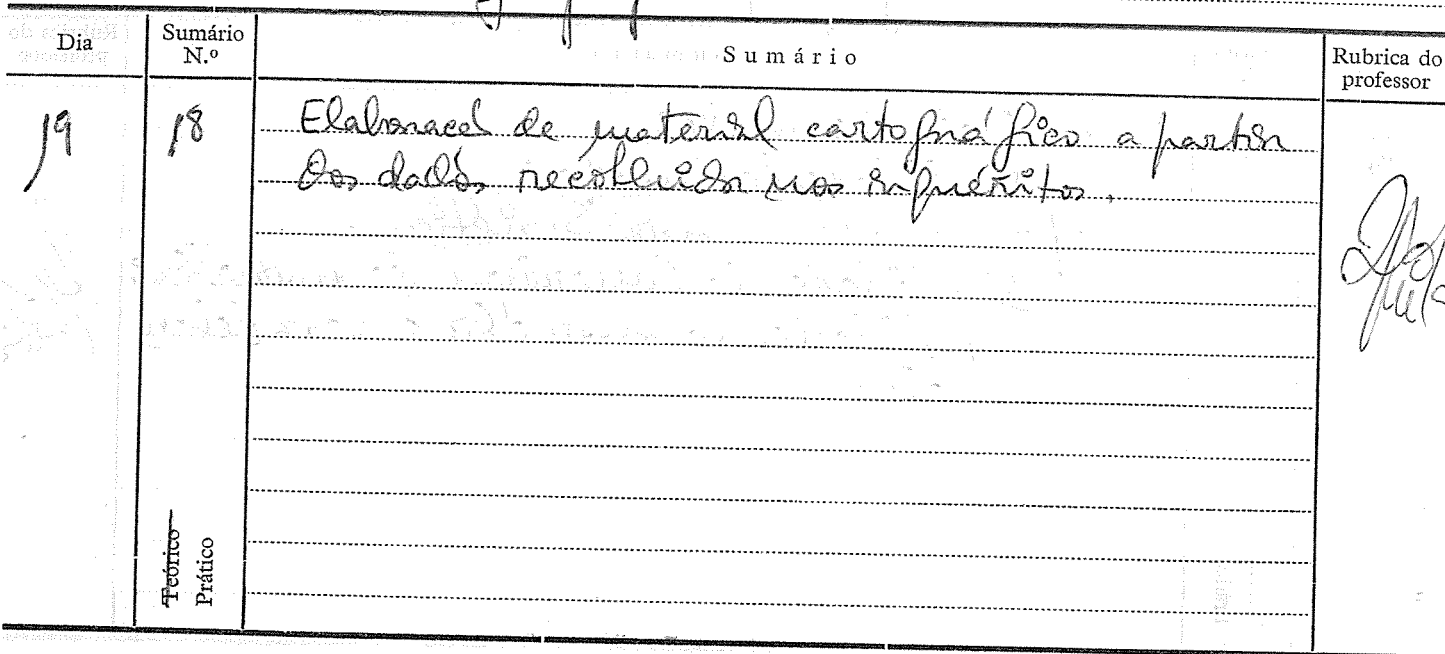 Dia
Sumário
N.º
Sumário
Rubrica do
professor
19
18
Elaboração de material cartográfico a partir
dos dados recolhidos nos inquéritos.
Teórico
Prático